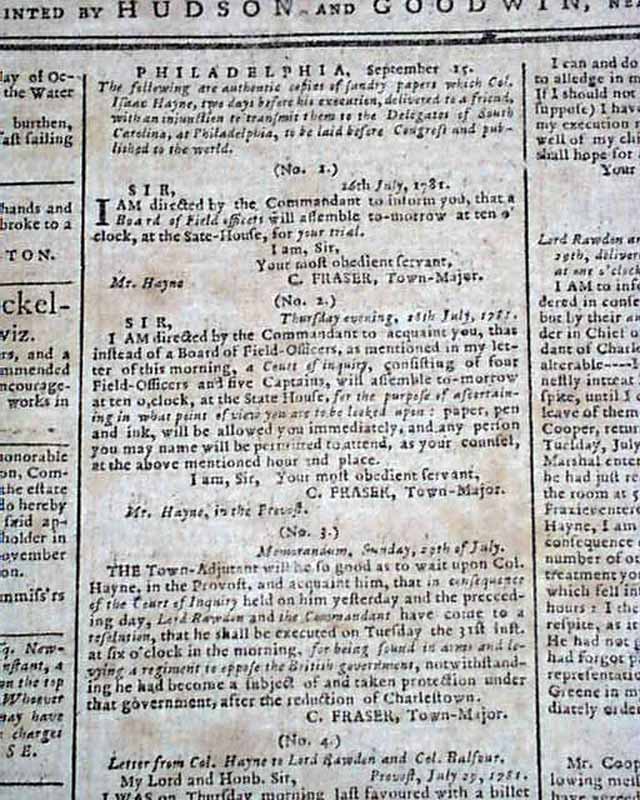 INTED BY HUDSON AND GOODWIN, NE
lay of Oc-
the Water
burthen,
fast sailing
hands and
broke to a
TON.
ckel-
viz.
rs, and a
mmended
ncourage-
works in
onorable
on, Com-
the estate
do hereby
said ap-
holder in
ovember
on.
mmiss'rs
New-
nstant, a
on the top
Whoever
may have
charges
SE.
PHILADELPHIA, September 15.
The following are authentic copies of sundry papers which Col.
Isaac Hayne, two days before his execution, delivered to a friend,
with an injunction to transmit them to the Delegates of South
Carolina, at Philadelphia, to be laid before Congress and pub-
lished to the world.
(No. 1.)
SIR, 26th July, 1781.
I AM directed by the Commandant to inform you, that a
Board of Field officers will assemble to-morrow at ten o'
clock, at the Sate-House, for your trial.
I am, Sir,
Your most obedient servant,
Mr. Hayne C. FRASER, Town-Major.
(No. 2.)
SIR, Thursday evening, 26th July, 1781.
I AM directed by the Commandant to acquaint you, that
instead of a Board of Field-Officers, as mentioned in my let-
ter of this morning, a Court of inquiry, consisting of four
Field-Officers and five Captains, will assemble to-morrow
at ten o,clock, at the State House, for the purpose of ascertain-
ing in what point of view you are to be looked upon: paper, pen
and ink, will be allowed you immediately, and any person
you may name will be permitted to attend, as your counsel,
at the above mentioned hour and place.
I am, Sir, Your most obedient servant,
C. FRASER, Town-Major.
Mr. Hayne, in the Provost.
(No. 3.)
Memorandum, Sunday, 29th of July.
THE Town-Adjutant will be so good as to wait upon Col.
Hayne, in the Provost, and acquaint him, that in consequence
of the Court of Inquiry held on him yesterday and the preceed-
ing day, Lord Rawdon and the Commandant have come to a
resolution, that he shall be executed on Tuesday the 31st inst.
at six o'clock in the morning, for being found in arms and le-
vying a regiment to oppose the British government, notwithstand-
ing he had become a subject of and taken protection under
that government, after the reduction of Charlestown.
C. FRASER, Town-Major.
(No. 4.)
Letter from Col. Hayne to Lord Rawdon and Col. Balfour.
My Lord and Honb. Sir, Provost, July 29, 1781.
I WAS on Thursday morning last favoured with a billet
I can and do
to alledge in m
If I should not
suppose) I hav
my execution
well of my chi
shall hope for
Your
Lord Rawdon an
29th, deliver
at one o'clock
I AM to info
dered in conse
but by their au
der in Chief o
dant of Charle
alterable----I
nestly intreat
spite, until I c
leave of them
Cooper, retur
Tuesday, July
Marshal enter
he had just re
the room at
Frazier entere
Hayne, I am
consequence
number of ot
treatment yo
which fell int
hours: I the
respite, as it
He had not g
had forgot
representati
Greene in m
diately order
Mr. Coop
lowing me
have agree